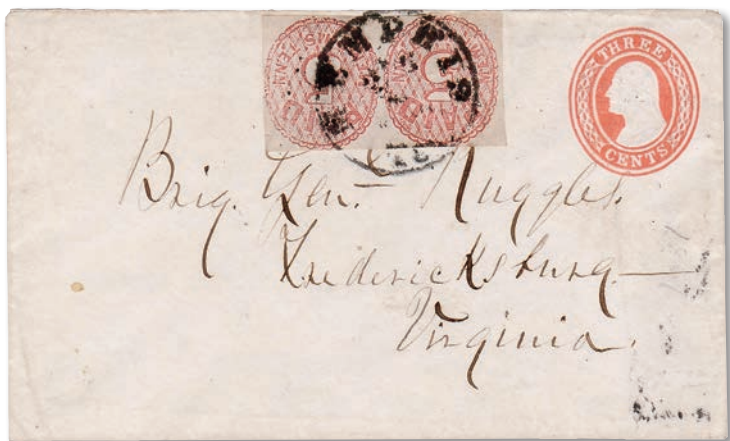 MEMPHIS
TE
PAID 5
PAID 5
THREE
CENTS
Brig. Gen. Ruggles.
Fredericksburg
Virginia.